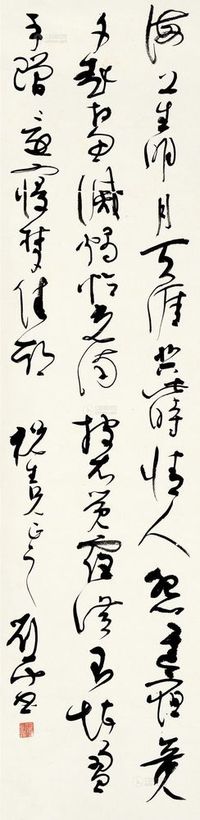 海上生明月天涯共此時情人怨遙夜竟
夕起相思滅燭憐光滿披衣覺露滋不堪盈
手贈還寢夢佳期
生兄正之